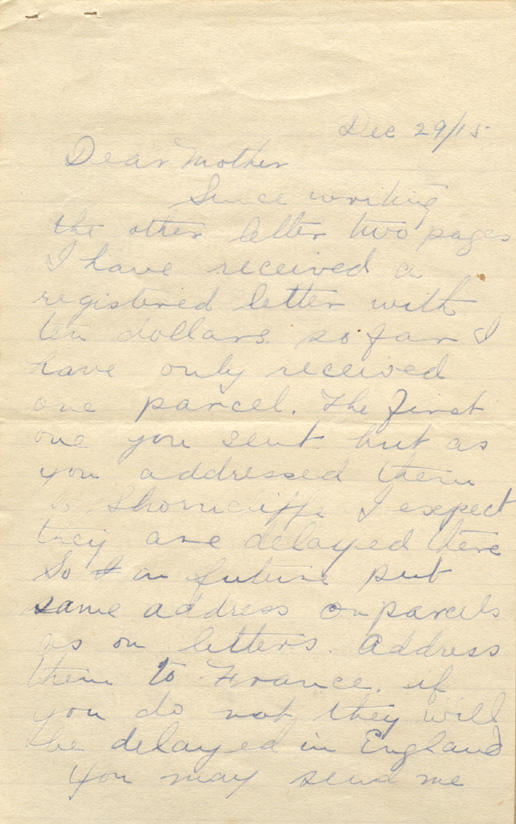 Dec 29/15
Dear Mother
Since writing
the other letter two pages
I have received a
registered letter with
ten dollars. so far I
have only received
one parcel. The first
one you sent but as
you addressed them
to Shorncliffe I expect
they are delayed there
So in future put
same address on parcels
as on letters. Address
them to France. if
you do not they will
be delayed in England
You may send me